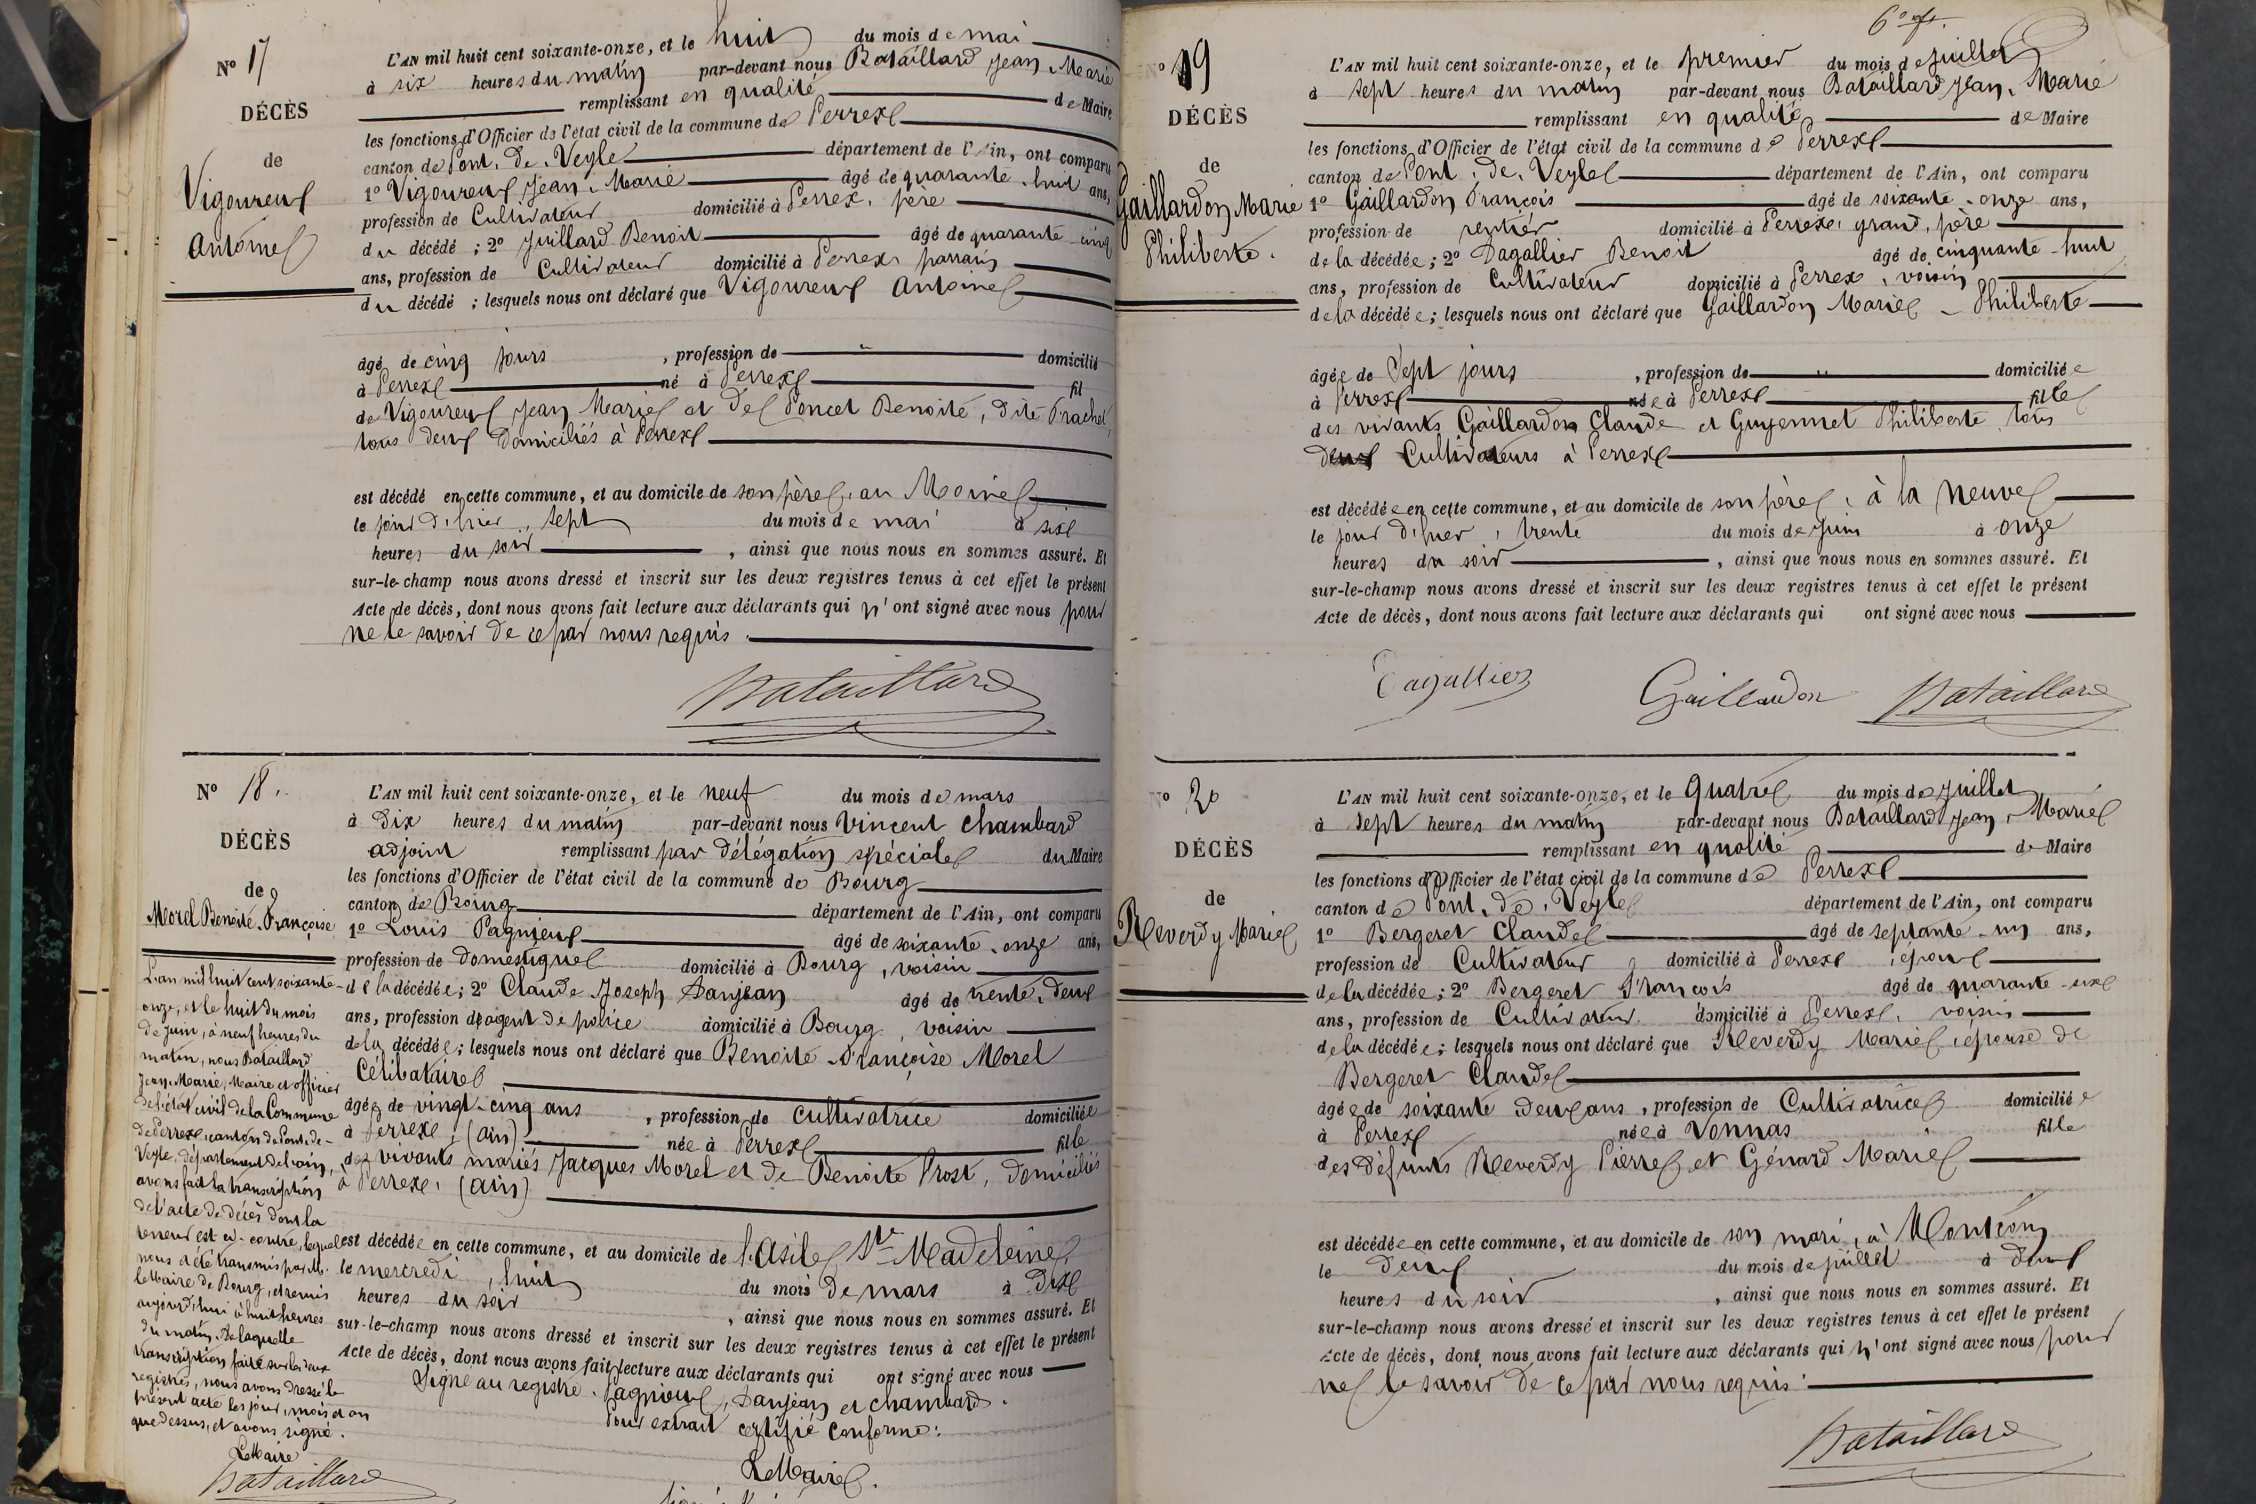 Nº 17
DÉCÈS
de
Vigoureux
Antoine
L'AN mil huit cent soixante-onze, et le huit du mois de mai
à six heures du matin par-devant nous Bataillard Jean-Marie
remplissant en qualité de Maire
les fonctions d'Officier de l'état civil de la commune de Perrex
canton de Pont-de-Veyle département de l'Ain, ont comparu
1º Vigoureux Jean-Marie âgé de quarante-huit ans,
profession de Cultivateur domicilié à Perrex, père
du décédé ; 2º Juillard Benoit âgé de quarante-cinq
ans, profession de Cultivateur domicilié à Perrex, parrain
du décédé ; lesquels nous ont déclaré que Vigoureux Antoine
âgé de cinq jours , profession de domicilié
à Perrex né à Perrex fil
de Vigoureux Jean Marie et de Poncet Benoite, dite Prachet,
tous deux domiciliés à Perrex
est décédé en cette commune, et au domicile de son père, au Moine
le jour d'hier, sept du mois de mai à six
heures du soir , ainsi que nous nous en sommes assuré. Et
sur-le-champ nous avons dressé et inscrit sur les deux registres tenus à cet effet le présent
Acte de décès, dont nous avons fait lecture aux déclarants qui n'ont signé avec nous pour
ne le savoir de ce par nous requis.
Bataillard
Nº 18.
DÉCÈS
de
Morel Benoite-Françoise
L'an mil huit cent soixante-
onze, et le huit du mois
de Juin, à neuf heures du
matin, nous Bataillard
Jean-Marie, Maire et officier
de l'état civil de la Commune
de Perrex, canton de Pont-de-
Veyle, département de l'ain,
avons fait la transcription
de l'acte de décès dont la
teneur est ci-contre, lequel
nous a été transmis par M.
le Maire de Bourg, et remis
aujourd'hui à huit heures
du matin. De laquelle
transcription faite sur les deux
registres, nous avons dressé le
présent acte les jour, mois et an
que dessus, et avons signé.
Le Maire
Bataillard
L'AN mil huit cent soixante-onze, et le neuf du mois de mars
à dix heures du matin par-devant nous Vincent Chambard
adjoint remplissant par délégation spéciale du Maire
les fonctions d'Officier de l'état civil de la commune de Bourg
canton de Bourg département de l'Ain, ont comparu
1º Louis Pagnieux âgé de soixante-onze ans,
profession de domestique domicilié à Bourg, voisin
de la décédée ; 2º Claude Joseph Danjean âgé de trente-deux
ans, profession d'agent de police domicilié à Bourg, voisin
de la décédée ; lesquels nous ont déclaré que Benoite-Françoise Morel
Célibataire
âgée de vingt-cinq ans , profession de cultivatrice domiciliée
à Perrex, (ain) née à Perrex fille
des vivants mariés Jacques Morel et de Benoite Prost, domiciliés
à Perrex, (ain)
est décédée en cette commune, et au domicile de l'asile Ste Madeleine
le mercredi, huit du mois de mars à dix
heures du soir , ainsi que nous nous en sommes assuré. Et
sur-le-champ nous avons dressé et inscrit sur les deux registres tenus à cet effet le présent
Acte de décès, dont nous avons fait lecture aux déclarants qui ont signé avec nous
Signé au registre. Pagnieux, Danjean et chambard.
Pour extrait certifié conforme :
Le Maire.
Nº 19
DÉCÈS
de
Gaillardon Marie
Philiberte.
L'AN mil huit cent soixante-onze, et le premier du mois de Juillet
à sept heures du matin par-devant nous Bataillard Jean-Marie
remplissant en qualité de Maire
les fonctions d'Officier de l'état civil de la commune de Perrex
canton de Pont-de-Veyle département de l'Ain, ont comparu
1º Gaillardon François âgé de soixante-onze ans,
profession de rentier domicilié à Perrex, grand-père
de la décédée ; 2º Dagallier Benoit âgé de cinquante-huit
ans, profession de Cultivateur domicilié à Perrex, voisin
de la décédée ; lesquels nous ont déclaré que Gaillardon Marie-Philiberte
âgée de Sept jours , profession de domiciliée
à Perrex née à Perrex fille
des vivants Gaillardon Claude et Guyennet Philiberte tous
deux Cultivateurs à Perrex
est décédée en cette commune, et au domicile de son père, à la Neuve
le jour d'hier, trente du mois de juin à onze
heures du soir , ainsi que nous nous en sommes assuré. Et
sur-le-champ nous avons dressé et inscrit sur les deux registres tenus à cet effet le présent
Acte de décès, dont nous avons fait lecture aux déclarants qui ont signé avec nous
Dagallier Gaillardon Bataillard
Nº 20
DÉCÈS
de
Reverdy Marie
L'AN mil huit cent soixante-onze, et le Quatre du mois de Juillet
à sept heures du matin par-devant nous Bataillard Jean-Marie
remplissant en qualité de Maire
les fonctions d'Officier de l'état civil de la commune de Perrex
canton de Pont-de-Veyle département de l'Ain, ont comparu
1º Bergeret Claude âgé de septante-un ans,
profession de Cultivateur domicilié à Perrex, époux
de la décédée ; 2º Bergeret François âgé de quarante-six
ans, profession de Cultivateur domicilié à Perrex, voisin
de la décédée ; lesquels nous ont déclaré que Reverdy Marie, épouse de
Bergeret Claude
âgée de soixante deux ans , profession de Cultivatrice domiciliée
à Perrex née à Vonnas fille
des défunts Reverdy Pierre et Génard Marie
est décédée en cette commune, et au domicile de son mari, à Montcon
le deux du mois de juillet à deux
heures du soir , ainsi que nous nous en sommes assuré. Et
sur-le-champ nous avons dressé et inscrit sur les deux registres tenus à cet effet le présent
Acte de décès, dont nous avons fait lecture aux déclarants qui n'ont signé avec nous pour
ne le savoir de ce par nous requis.
Bataillard